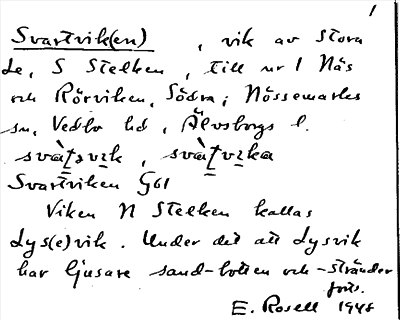 1
Svartvik(en) , vik av Stora
Le, S Stelken, till nr 1 Näs
och Rörviken, Södra, i Nössemarks
sn, Vedbo hd, Älvsborgs l.
Svartviken G61
Viken N Stelken kallas
Lys(e)vik. Under det att Lysvik
har ljusare sand-botten och -stränder
forts.
E. Rosell 1948